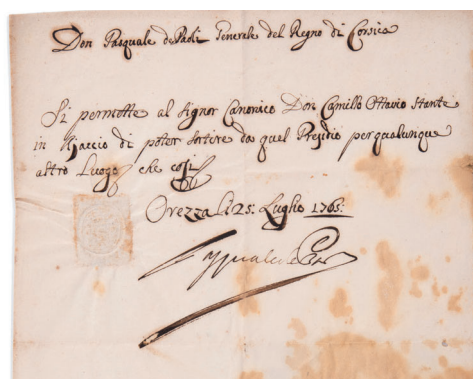 Don Pasquale de Paoli Generale del Regno di Corsica
Si permette al Signor Canonico Don Camillo Ottavio Stante
in Ajaccio di poter sortire da quel Presidio per qualunque
altro Luogo che così
Orezza li 25: Luglio 1765:
Pasquale de Paoli